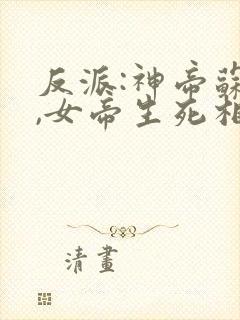 反派:神帝蘇
,女帝生死相
清畫